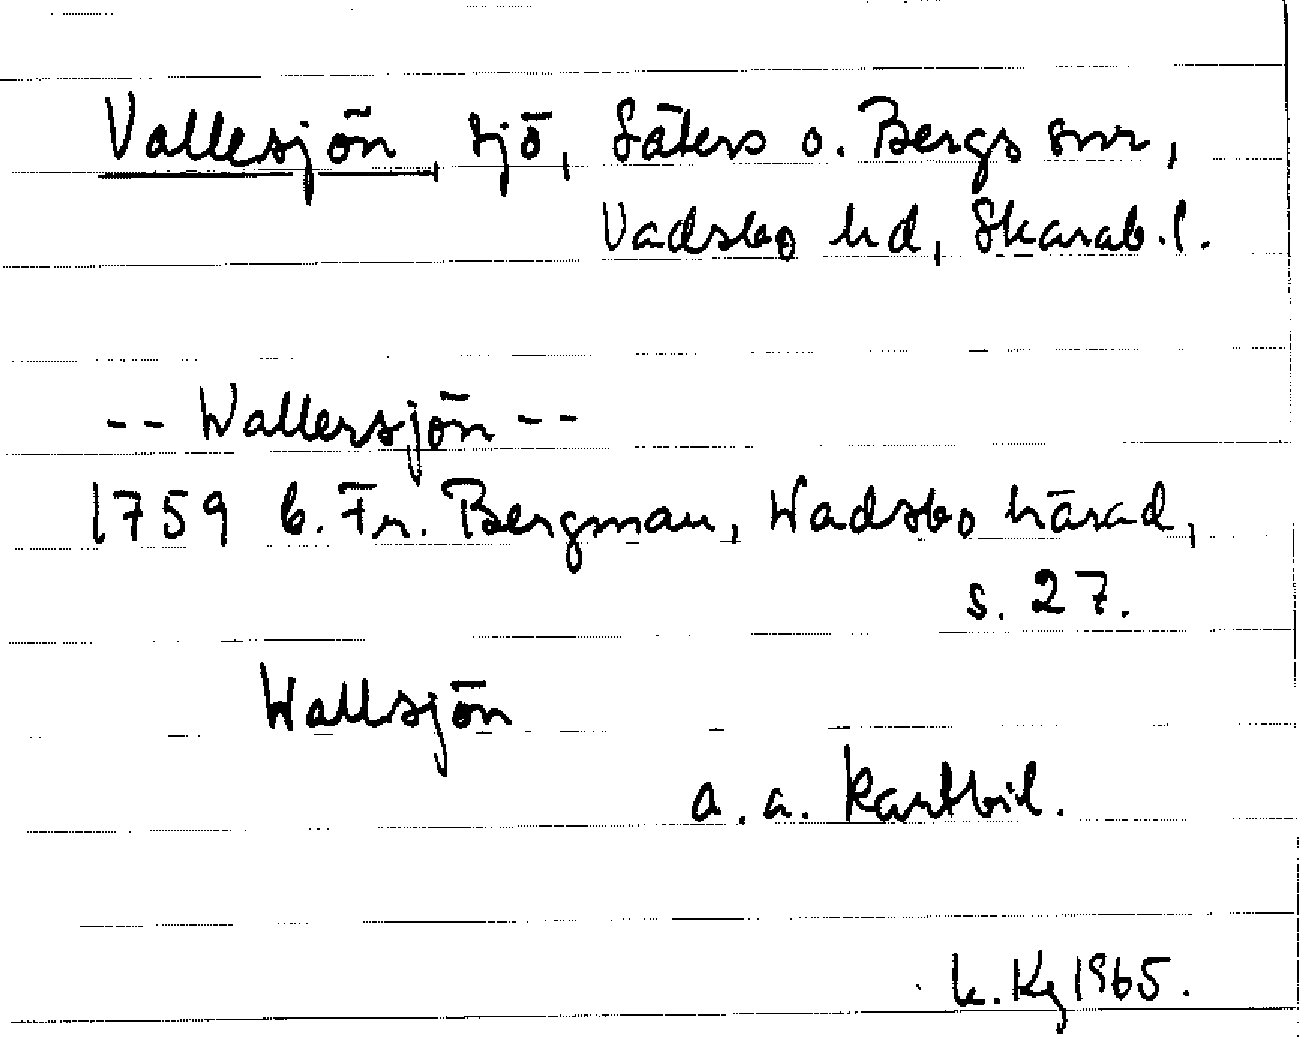 Vallesjön, sjö, Säters o. Bergs snr,
Vadsbo hd, Skarab.l.
-- Wallersjön --
1759 b. Fr. Bergman, Wadsbo härad,
s. 27.
Wallsjön
a. a. kartbil.
k. Kg 1965.